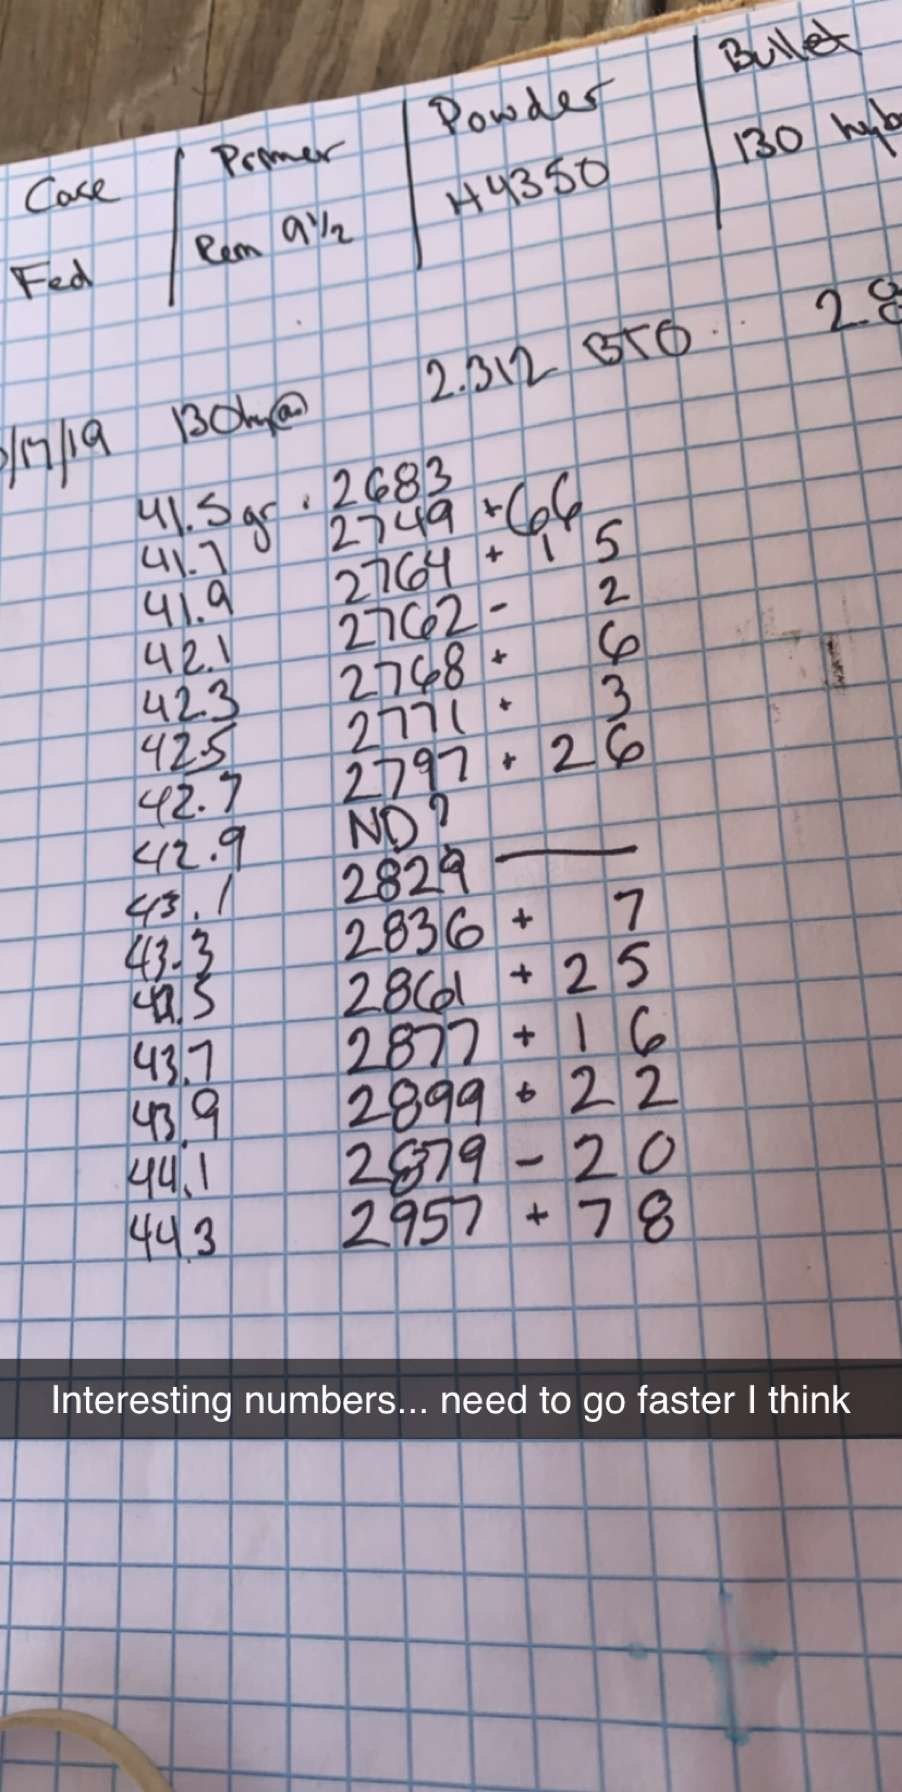 Case | Primer | Powder | Bullet
Fed | Rem 9½ | H4350 | 130
/17/19 130 2.312 BTO 2.8
41.5 gr . 2683
41.7 2749 +66
41.9 2764 + 15
42.1 2762 - 2
42.3 2768 + 6
42.5 2771 + 3
42.7 2797 + 26
42.9 ND?
43.1 2829 —
43.3 2836 + 7
43.5 2861 + 25
43.7 2877 + 16
43.9 2899 + 22
44.1 2879 - 20
44.3 2957 + 78
Interesting numbers... need to go faster I think